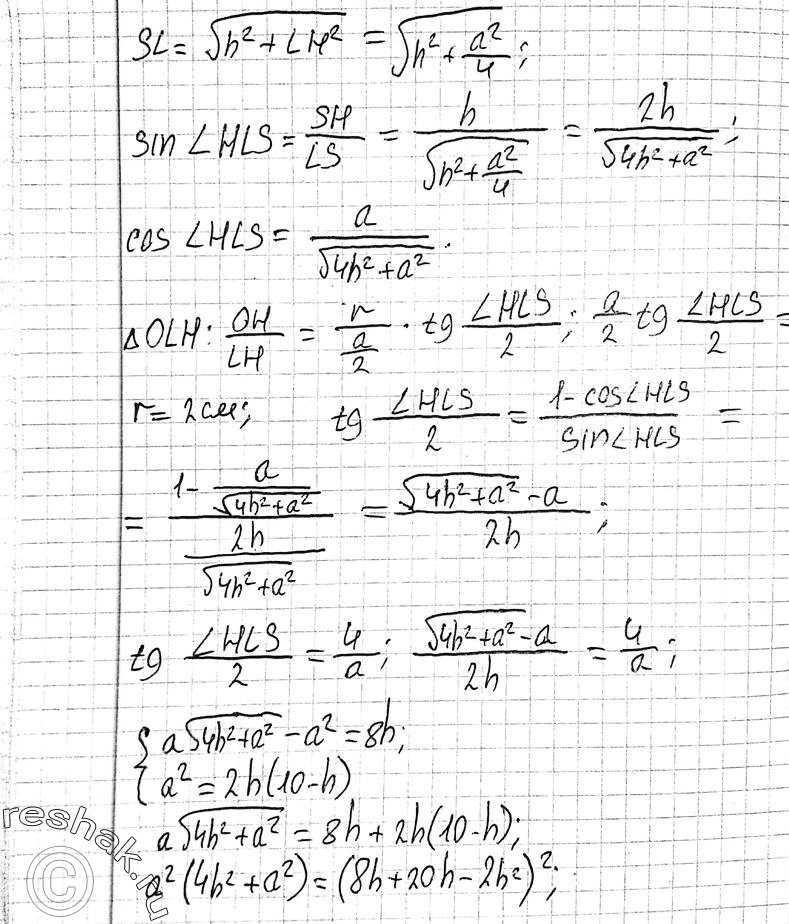 SL = √(h² + LH²) = √(h² + a²/4);
sin ∠HLS = SH/LS = h/√(h² + a²/4) = 2h/√(4h² + a²);
cos ∠HLS = a/√(4h² + a²).
△OLH: OH/LH = r/(a/2) · tg ∠HLS/2; a/2 tg ∠HLS/2 =
r = 2см; tg ∠HLS/2 = (1 - cos∠HLS)/(sin∠HLS) =
= (1 - a/√(4h² + a²))/(2h/√(4h² + a²)) = (√(4h² + a²) - a)/2h;
tg ∠HLS/2 = 4/a; (√(4h² + a²) - a)/2h = 4/a;
{ a√(4h² + a²) - a² = 8h;
{ a² = 2h(10 - h)
a√(4h² + a²) = 8h + 2h(10 - h);
a²(4h² + a²) = (8h + 20h - 2h²)²;
reshak.ru
©